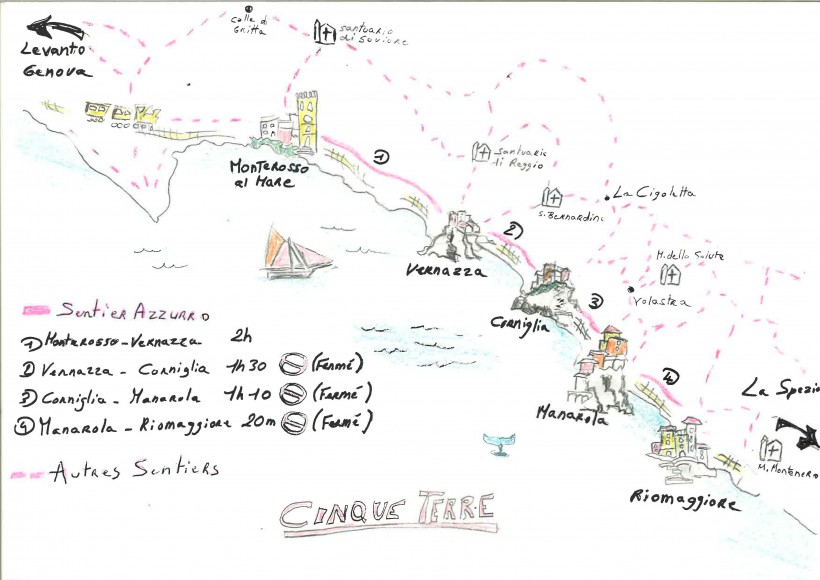 Levanto
Genova
Colle di
Gritta
santuario
di Soviore
Monterosso
al Mare
1)
santuario
di Reggio
S. Bernardino
La Cigoletta
2)
Vernazza
M. della Salute
Volastra
Corniglia
3
Sentier Azzurro
1) Monterosso - Vernazza 2h
2) Vernazza - Corniglia 1h30 (Fermé)
3) Corniglia - Manarola 1h10 (Fermé)
4 Manarola - Riomaggiore 20m (Fermé)
Autres Sentiers
Manarola
4
La Spezia
M. Montenero
Riomaggiore
Cinque Terre